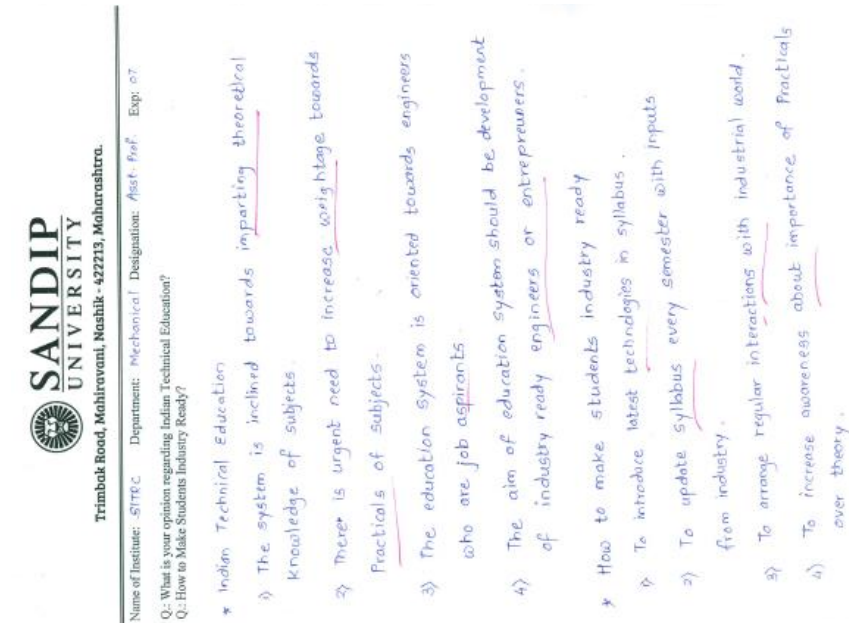 SANDIP
UNIVERSITY
Trimbak Road, Mahiravani, Nashik - 422213, Maharashtra.
Name of Institute: SITRC Department: Mechanical Designation: Asst. Prof. Exp: 07
Q.: What is your opinion regarding Indian Technical Education?
Q.: How to Make Students Industry Ready?
* Indian Technical Education
1) The system is inclined towards imparting theoretical
knowledge of subjects.
2) There is urgent need to increase weightage towards
Practicals of subjects.
3) The education system is oriented towards engineers
who are job aspirants.
4) The aim of education system should be development
of industry ready engineers or entrepreuners.
* How to make students industry ready
1) To introduce latest technologies in syllabus.
2) To update syllabus every semester with inputs
from industry.
3) To arrange regular interactions with industrial world.
4) To increase awareness about importance of Practicals
over theory.